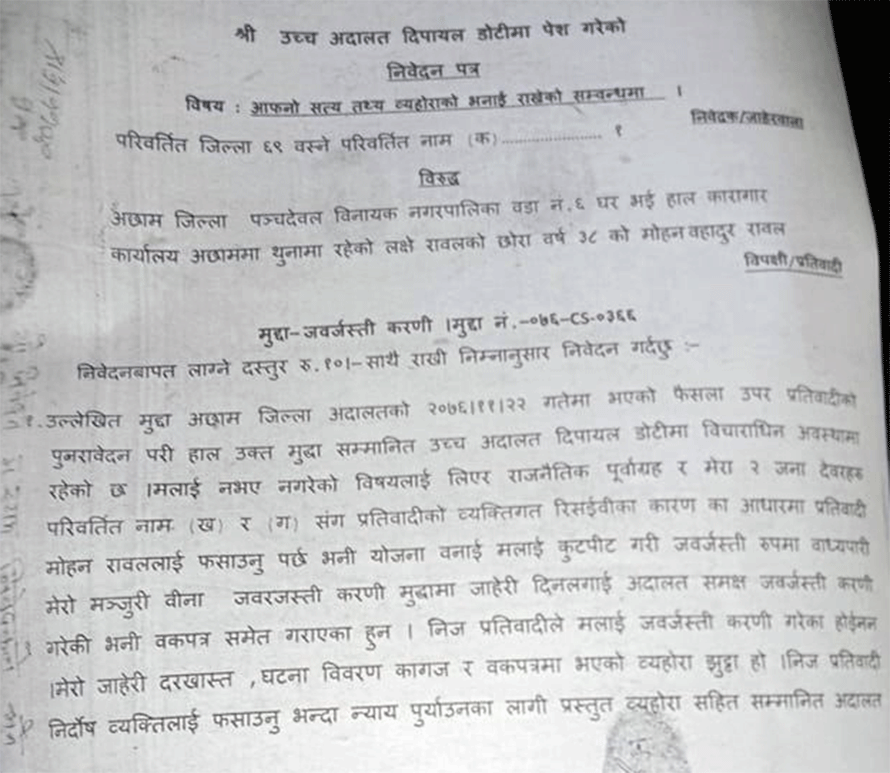 श्री उच्च अदालत दिपायल डोटीमा पेश गरेको
निवेदन पत्र
विषय : आफनो सत्य तथ्य व्यहोराको भनाई राखेको सम्वन्धमा ।
परिवर्तित जिल्ला ६९ वस्ने परिवर्तित नाम (क)........................ १
निवेदक/जाहेरवाला
विरुद्ध
अछाम जिल्ला पञ्चदेवल विनायक नगरपालिका वडा नं.६ घर भई हाल कारागार
कार्यालय अछाममा थुनामा रहेको लक्षे रावलको छोरा वर्ष ३८ को मोहन वहादुर रावल
विपक्षी/प्रतिवादी
मुद्दा-जवर्जस्ती करणी ।मुद्दा नं.-०७६-CS-०३६६
निवेदनबापत लाग्ने दस्तुर रु.१०।- साथै राखी निम्नानुसार निवेदन गर्दछु :-
१.उल्लेखित मुद्दा अछाम जिल्ला अदालतको २०७६।११।२२ गतेमा भएको फैसला उपर प्रतिवादीको
पुनरावेदन परी हाल उक्त मुद्धा सम्मानित उच्च अदालत दिपायल डोटीमा विचाराधिन अवस्थामा
रहेको छ ।मलाई नभए नगरेको विषयलाई लिएर राजनैतिक पूर्वाग्रह र मेरा २ जना देवरहरु
परिवर्तित नाम (ख) र (ग) संग प्रतिवादीको व्यक्तिगत रिसईवीका कारण का आधारमा प्रतिवादी
मोहन रावललाई फसाउनु पर्छ भनी योजना वनाई मलाई कुटपीट गरी जवर्जस्ती रुपमा वाध्यपारी
मेरो मञ्जुरी वीना जवरजस्ती करणी मुद्धामा जाहेरी दिनलगाई अदालत समक्ष जवर्जस्ती करणी
गरेकी भनी वकपत्र समेत गराएका हुन । निज प्रतिवादीले मलाई जवर्जस्ती करणी गरेका होईनन
।मेरो जाहेरी दरखास्त ,घटना विवरण कागज र वकपत्रमा भएको व्यहोरा झुट्ठा हो ।निज प्रतिवादी
निर्दोष व्यक्तिलाई फसाउनु भन्दा न्याय पुर्याउनका लागी प्रस्तुत व्यहोरा सहित सम्मानित अदालत